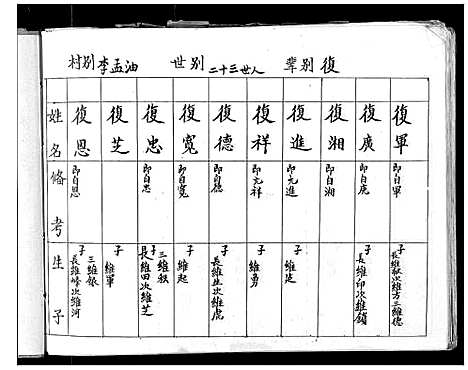 輩别復 世别二十三世人 村别李孟油
姓名 備考 生子
復軍 即自軍 子長維 次維方三維德
復廣 即自廣 子長維印次維鎖
復湘 即自湘
復進 即允進 子維廷
復祥 即允祥 子維勇
復德 即自德 子長維生次維虎
復寬 即自寬 子維起
復忠 即自忠 子長維田次維芝三維銀
復芝 子維軍
復恩 即自恩 子長維峰次維河三維銀